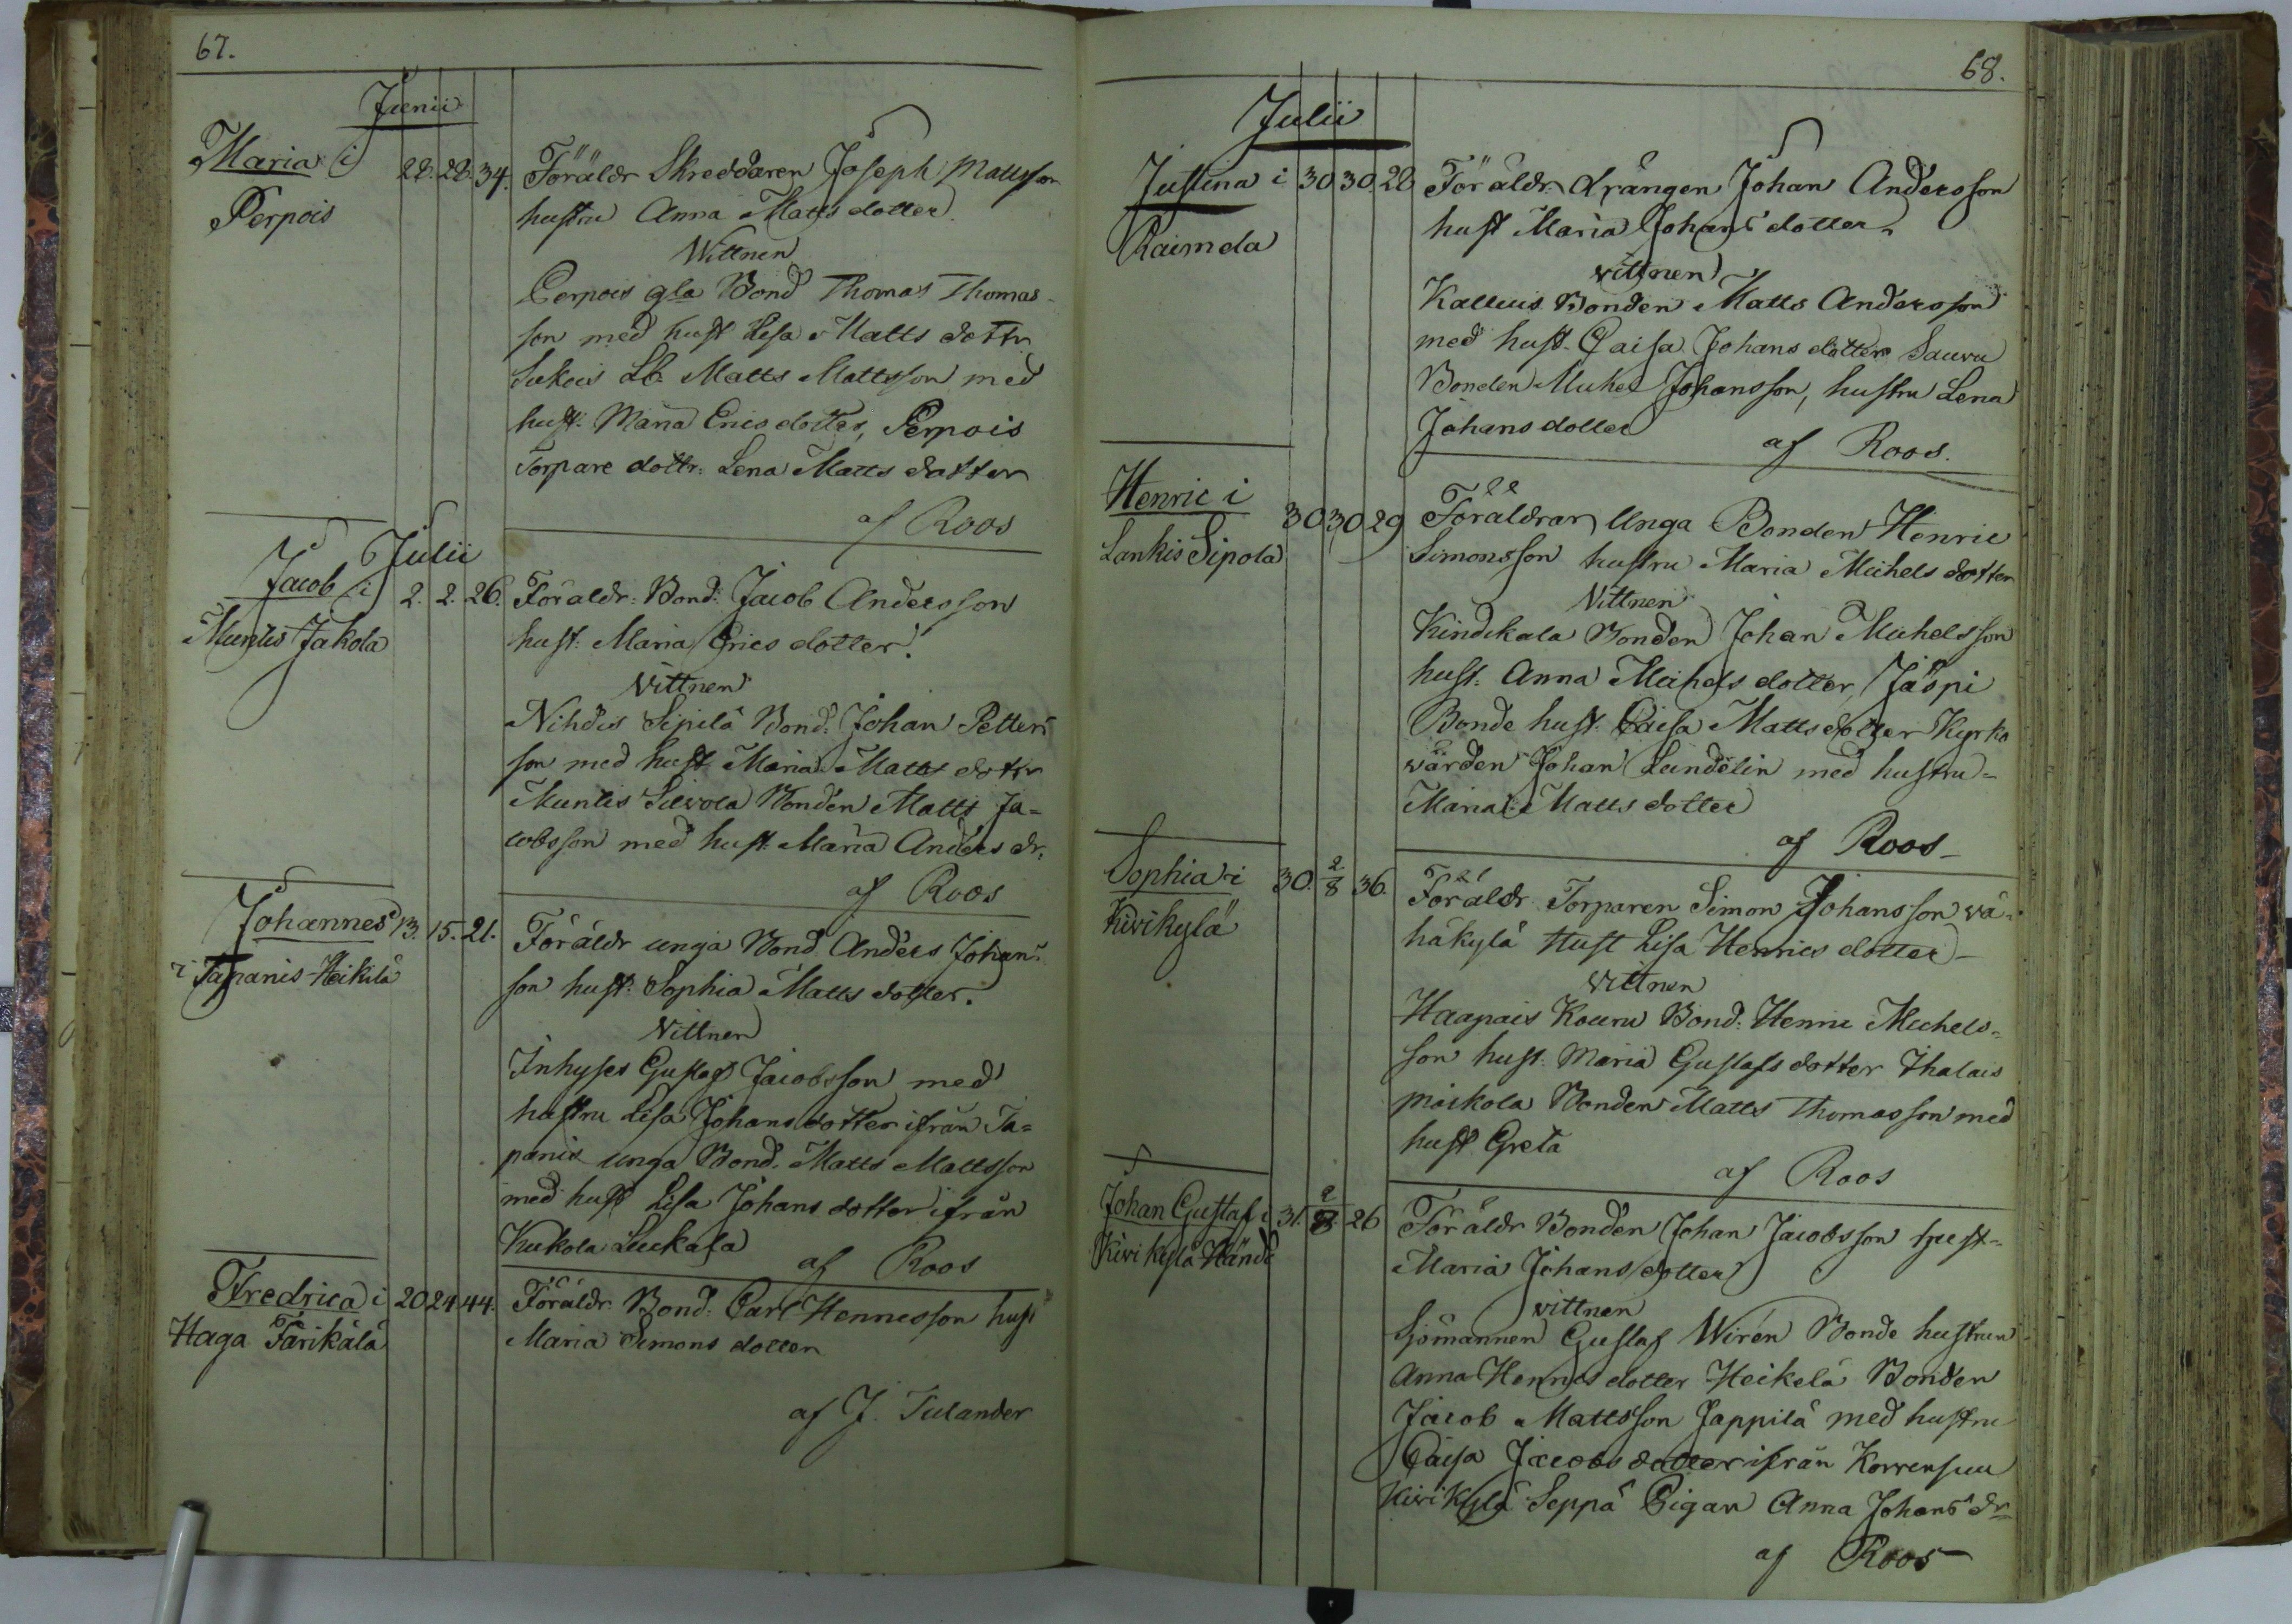 67.
Junii
Maria i 28. 28. 34. Föräldr Skreddaren Joseph Mattsson
Perpois
hustru Anna Matts dotter
Wittnen
Perpois gla Bond Thomas Thomas-
son med hust Lisa Matts dottr
Lb. Matts Mattsson med
hust. Maria Erics dotter, Perpois
Torpare dottr. Lena Matts dotter
af Roos
Julii
Jacob i 2. 2. 26. Föräldr. Bond. Jacob Andersson
Muntis Jakola
hust. Maria Erics dotter.
Vittnen
Nihdis Sipilä Bond. Johan Petters
son med hust Maria Matts dottr
Muntis Bonden Matts Ja=
cobsson med hust. Maria Anders dr.
af Roos
Johannes 13. 15. 21. Föräldr unga Bond Anders Johans
i Tapanis Heikilä
son hust. Sophia Matts dotter.
Vittnen
Inhyses Gustaf Jacobsson med
hustru Lisa Johans dotter ifrån Ta=
panis unga Bond. Matts Mattsson
med hust Lisa Johans dotter ifrån
Kukola
af Roos
Fredrica i 20 24 44. Föräldr. Bond. Carl Henricsson hust
Haga Färikälä
Maria Simons dotter
af J. Tulander
68.
Julii
Justina i 30 30. 28 Föräldr. drängen Johan Andersson
Raimela
hust Maria Johans dotter
vittnen
Kalluis Bonden Matts Andersson
med hust. Caisa Johans dotter Sauvu
Bonden Michel Johansson, hustru Lena
Johans dotter
af Roos.
Henric i 30 30 29 Föräldrar Unga Bonden Henric
Lankis Sipola
Simonsson hustru Maria Michels dotter
Vittnen
Kindikala Bonden Johan Michelsson
hust. Anna Michels dotter, Jäspi
Bonde hust. Caisa Matts dotter Kyrko
wärden Johan Lundelin med hustru=
Maria Matts dotter
af Roos
Sophia i 30. 2/8 36. Föräldr Torparen Simon Johansson wä=
Kiwikylä
häkylä Hust Lisa Henrics dotter
vittnen
Haapais Kouru Bond. Henric Michels=
son hust. Maria Gustafs dotter Ihalais
moikola Bonden Matts Thomasson med
hust Greta
af Roos
Johan Gustaf i 31. 2/8. 26 Föräldr Bonden Johan Jacobsson hust=
Kiwikylä Händi
Maria Johans dotter
vittnen
Sjömannen Gustaf Wirén Bonde hustrun
Anna Henrics dotter Heikelä Bonden
Jacob Mattsson Jappilä med hustru
Caisa Jacobs dotter ifrån Korrensuu
Kiwikylä Seppä Pigan Anna Johans dr
af Roos